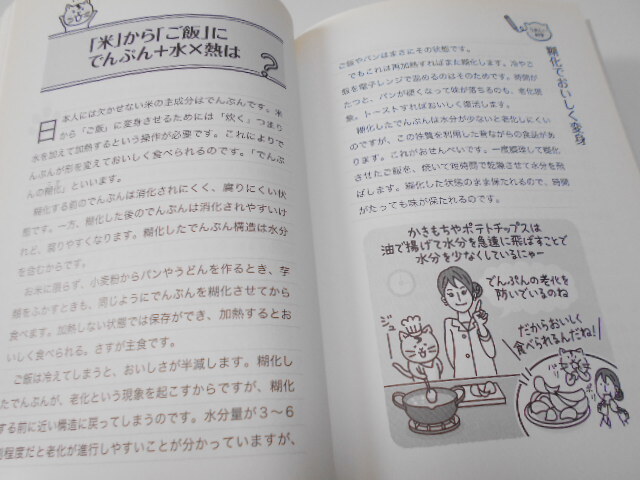 「米」から「ご飯」に
でんぷん+水×熱は
?
日本人には欠かせない米の主成分はでんぷんです。米
から「ご飯」に変身させるためには「炊く」つまり
水を加えて加熱するという操作が必要です。これによりで
んぷんが形を変えておいしく食べられるのです。「でんぷ
んの糊化」といいます。
糊化する前のでんぷんは消化されにくく、腐りにくい状
態です。一方、糊化した後のでんぷんは消化されやすいけ
れど、腐りやすくなります。糊化したでんぷん構造は水分
を含むからです。
お米に限らず、小麦粉からパンやうどんを作るとき、芋
類をふかすときも、同じようにでんぷんを糊化させてから
食べます。加熱しない状態では保存ができ、加熱するとお
いしく食べられる。さすが主食です。
ご飯は冷えてしまうと、おいしさが半減します。糊化し
たでんぷんが、老化という現象を起こすからですが、糊化
する前に近い構造に戻ってしまうのです。水分量が3〜6
割程度だと老化が進行しやすいことが分かっていますが、
糊化でおいしく変身
ご飯やパンはまさにその状態です。
でもこれは再加熱すればまた糊化します。冷やご
飯を電子レンジで温めるのはそのためです。時間が
たつと、パンが硬くなって味が落ちるのも、老化現
象、トーストすればおいしく復活します。
糊化したでんぷんは水分が少ないと老化しにくい
のですが、この性質を利用した昔ながらの食品があ
ります。これがおせんべいです。一度糊化
させたご飯を、焼いて短時間で乾燥させて水分を飛
ばします。糊化した状態のまま保たれるので、時間
がたっても味が保たれるのです。
かきもちやポテトチップスは
油で揚げて水分を急速に飛ばすことで
水分を少なくしているにゃー
でんぷんの老化を
防いでいるのね
ジュー
だからおいしく
食べられるんだね!
パリッ
パリッ